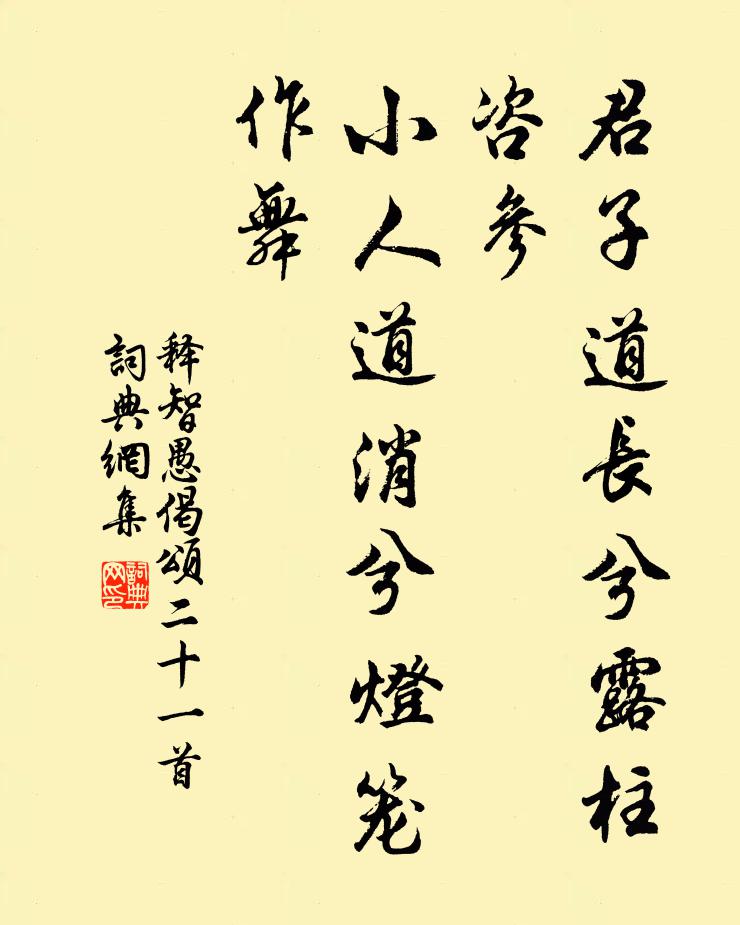 君子道長兮露柱
咨參
小人道消兮燈笼
作舞
释智愚偈頌二十一首
詞典網集
詞典网印